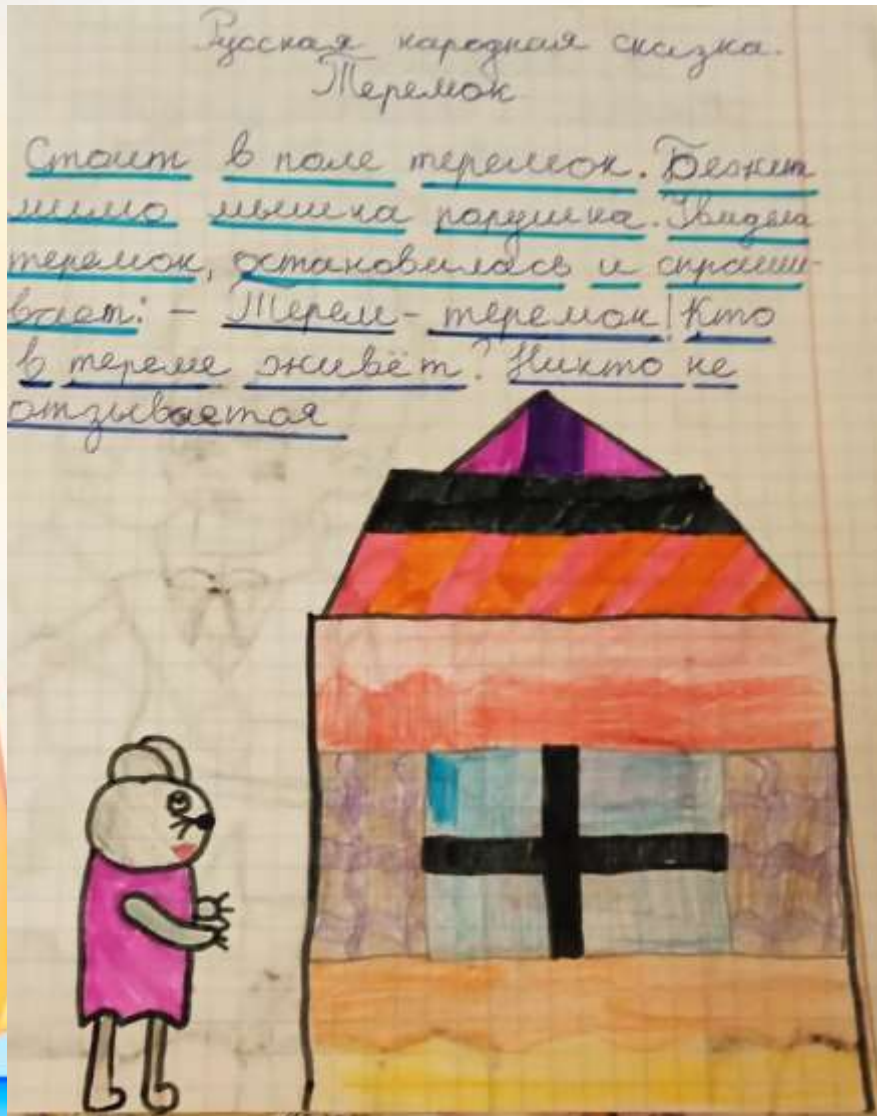 Русская народная сказка.
Теремок
Стоит в поле теремок. Бежит
мимо мышка норушка. Увидела
теремок, остановилась и спраши-
вает: - Терем - теремок! Кто
в тереме живёт? Никто не
отзывается